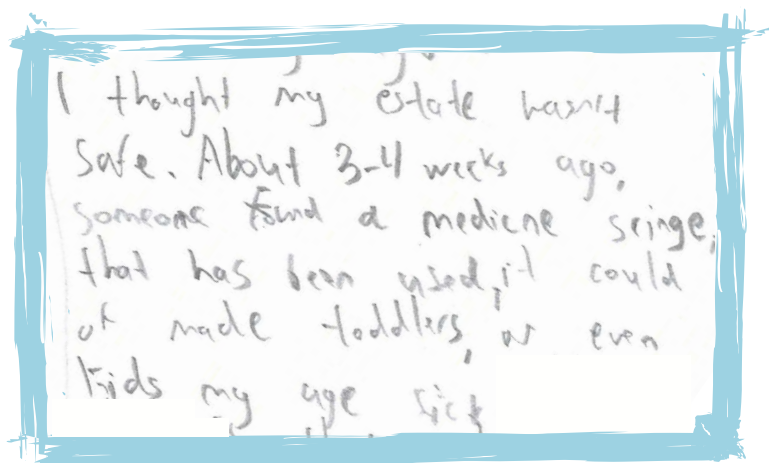 I thought my estate wasn't
safe. About 3-4 weeks ago,
someone found a medicne sringe,
that has been used, it could
of made toddlers, or even
kids my age sick